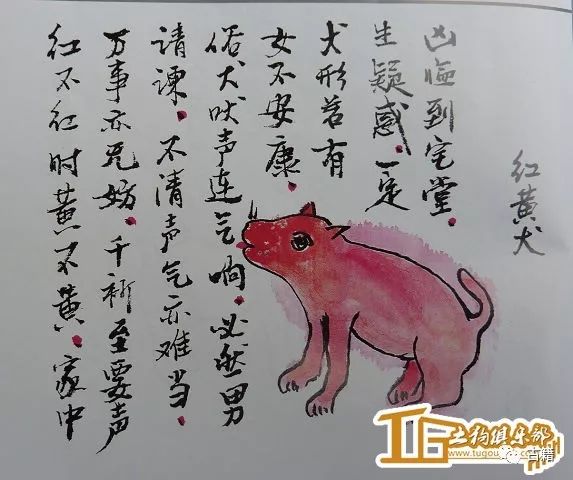 红黄犬
红不红时黄不黄。家中
万事亦无妨。千祈至要声
请谏。不清声气亦难当。
俗犬吠声连气响。必然男
女不安康。
犬形若有
生疑惑。一定
凶临到宅堂。
TG土狗俱乐部
www.tugou
古籍